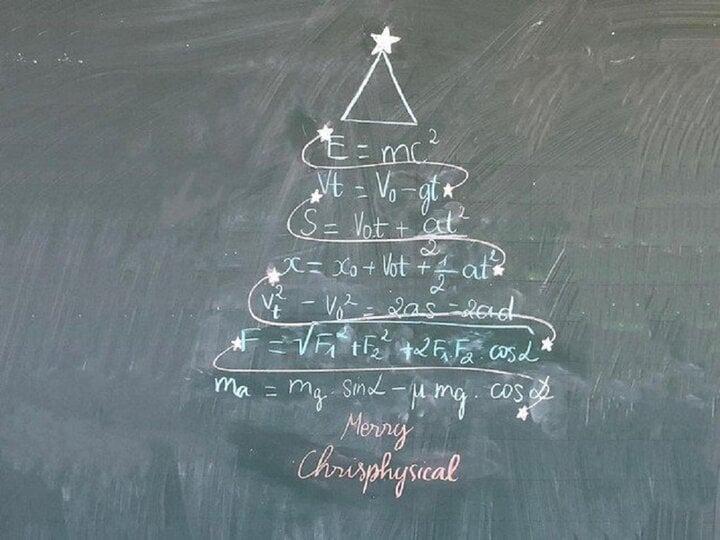 E = mc²
Vt = V₀ - gt
S = V₀t + at²/2
x = x₀ + V₀t + 1/2 at²
Vt² - V₀² = 2as = 2ad
F = √F₁² + F₂² + 2F₁.F₂.cosα
ma = mg.sinα - μmg.cosα
Merry
Chrisphysical